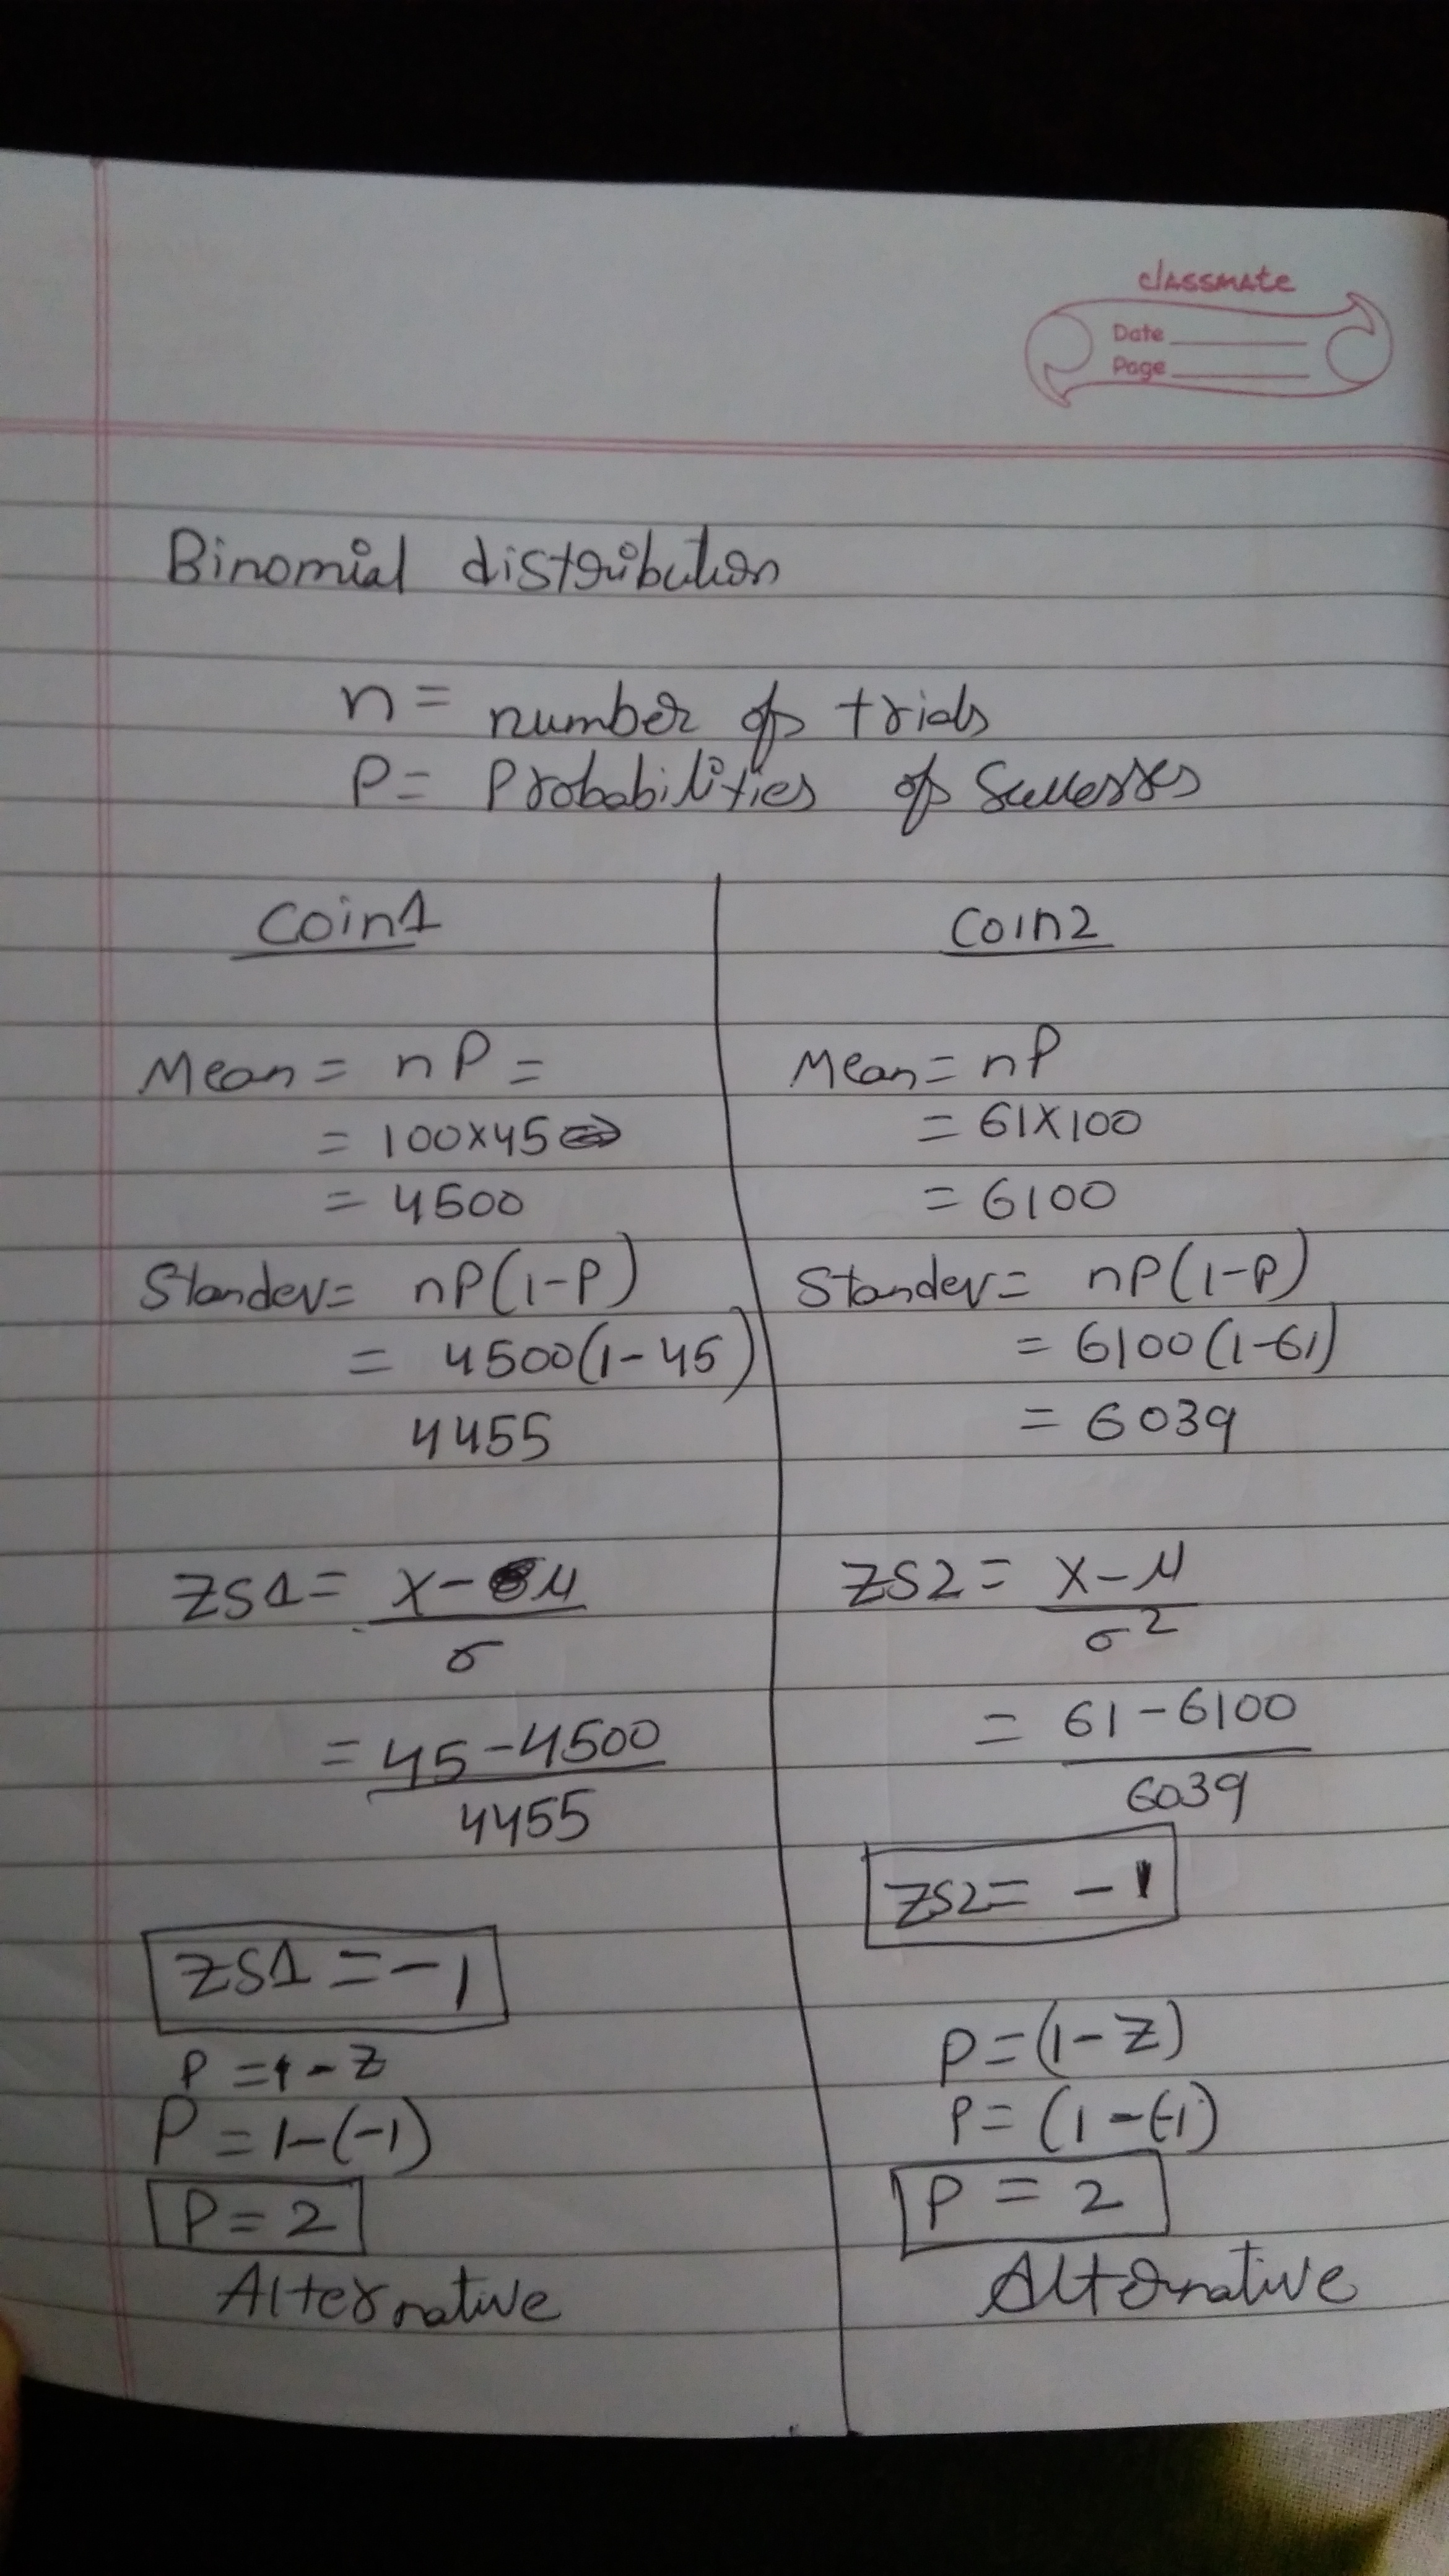 classmate
Date
Page
Binomial distribution
n = number of trials
P = Probabilities of Successes
Coin1
Mean = nP =
= 100x45
= 4500
Standev = nP(1-P)
= 4500(1-45)
4455
ZS1 = x-μ
σ
= 45-4500
4455
ZS1 = -1
P = 1-Z
P = 1-(-1)
P = 2
Alternative
Coin2
Mean = nP
= 61x100
= 6100
Standev = nP(1-P)
= 6100(1-61)
= 6039
ZS2 = x-μ
σ²
= 61-6100
6039
ZS2 = -1
P = (1-Z)
P = (1-(-1)
P = 2
Alternative